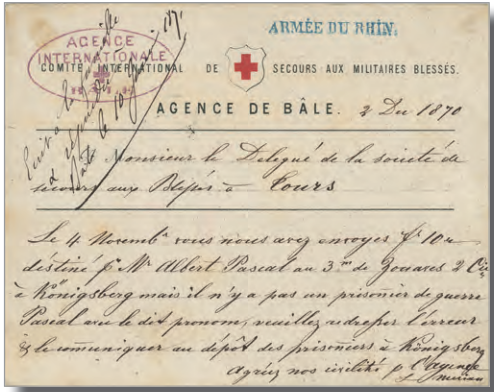 ARMÉE DU RHIN.
AGENCE
INTERNATIONALE
COMITÉ INTERNATIONAL DE SECOURS AUX MILITAIRES BLESSÉS.
Ecrit à la
le 10 1871
AGENCE DE BÂLE. 2 Du 1870
Monsieur le Delegué de la societé de
secours aux Blessés à Tours
Le 4 Novemb. vous nous avez envoyés fr 10
destiné p. Mr Albert Pascal au 3me de Zouaves 2 Cie
à Königsberg mais il n'y a pas un prisonier de guerre
Pascal avec le dit pronom, veuillez redresser l'erreur
& le communiquer au dépôt des prisoniers à Königsberg
Agréez nos civilités p. l'agence